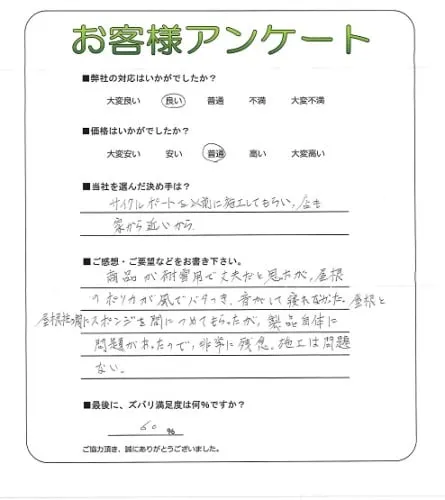 お客様アンケート
■弊社の対応はいかがでしたか？
大変良い 良い 普通 不満 大変不満
■価格はいかがでしたか？
大変安い 安い 普通 高い 大変高い
■当社を選んだ決め手は？
サイクルポートを以前に施工してもらい、店も
家から近いから
■ご感想・ご要望などをお書き下さい。
商品が耐雪用で丈夫だと思ったが、屋根
のポリカが風でバタつき、音がして寝れなかった。屋根と
屋根枠の間にスポンジを間につめてもらったが、製品自体に
問題があったので、非常に残念。施工は問題
ない。
■最後に、ズバリ満足度は何％ですか？
60 %
ご協力頂き、誠にありがとうございました。